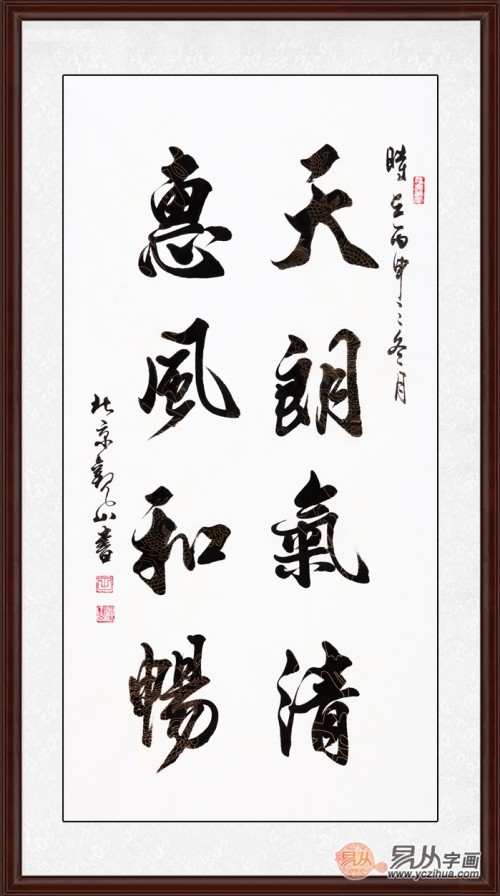 時在丙申之冬月
天朗氣清
惠風和暢
北京觀山書
易从
易从字画
www.yczihua.com